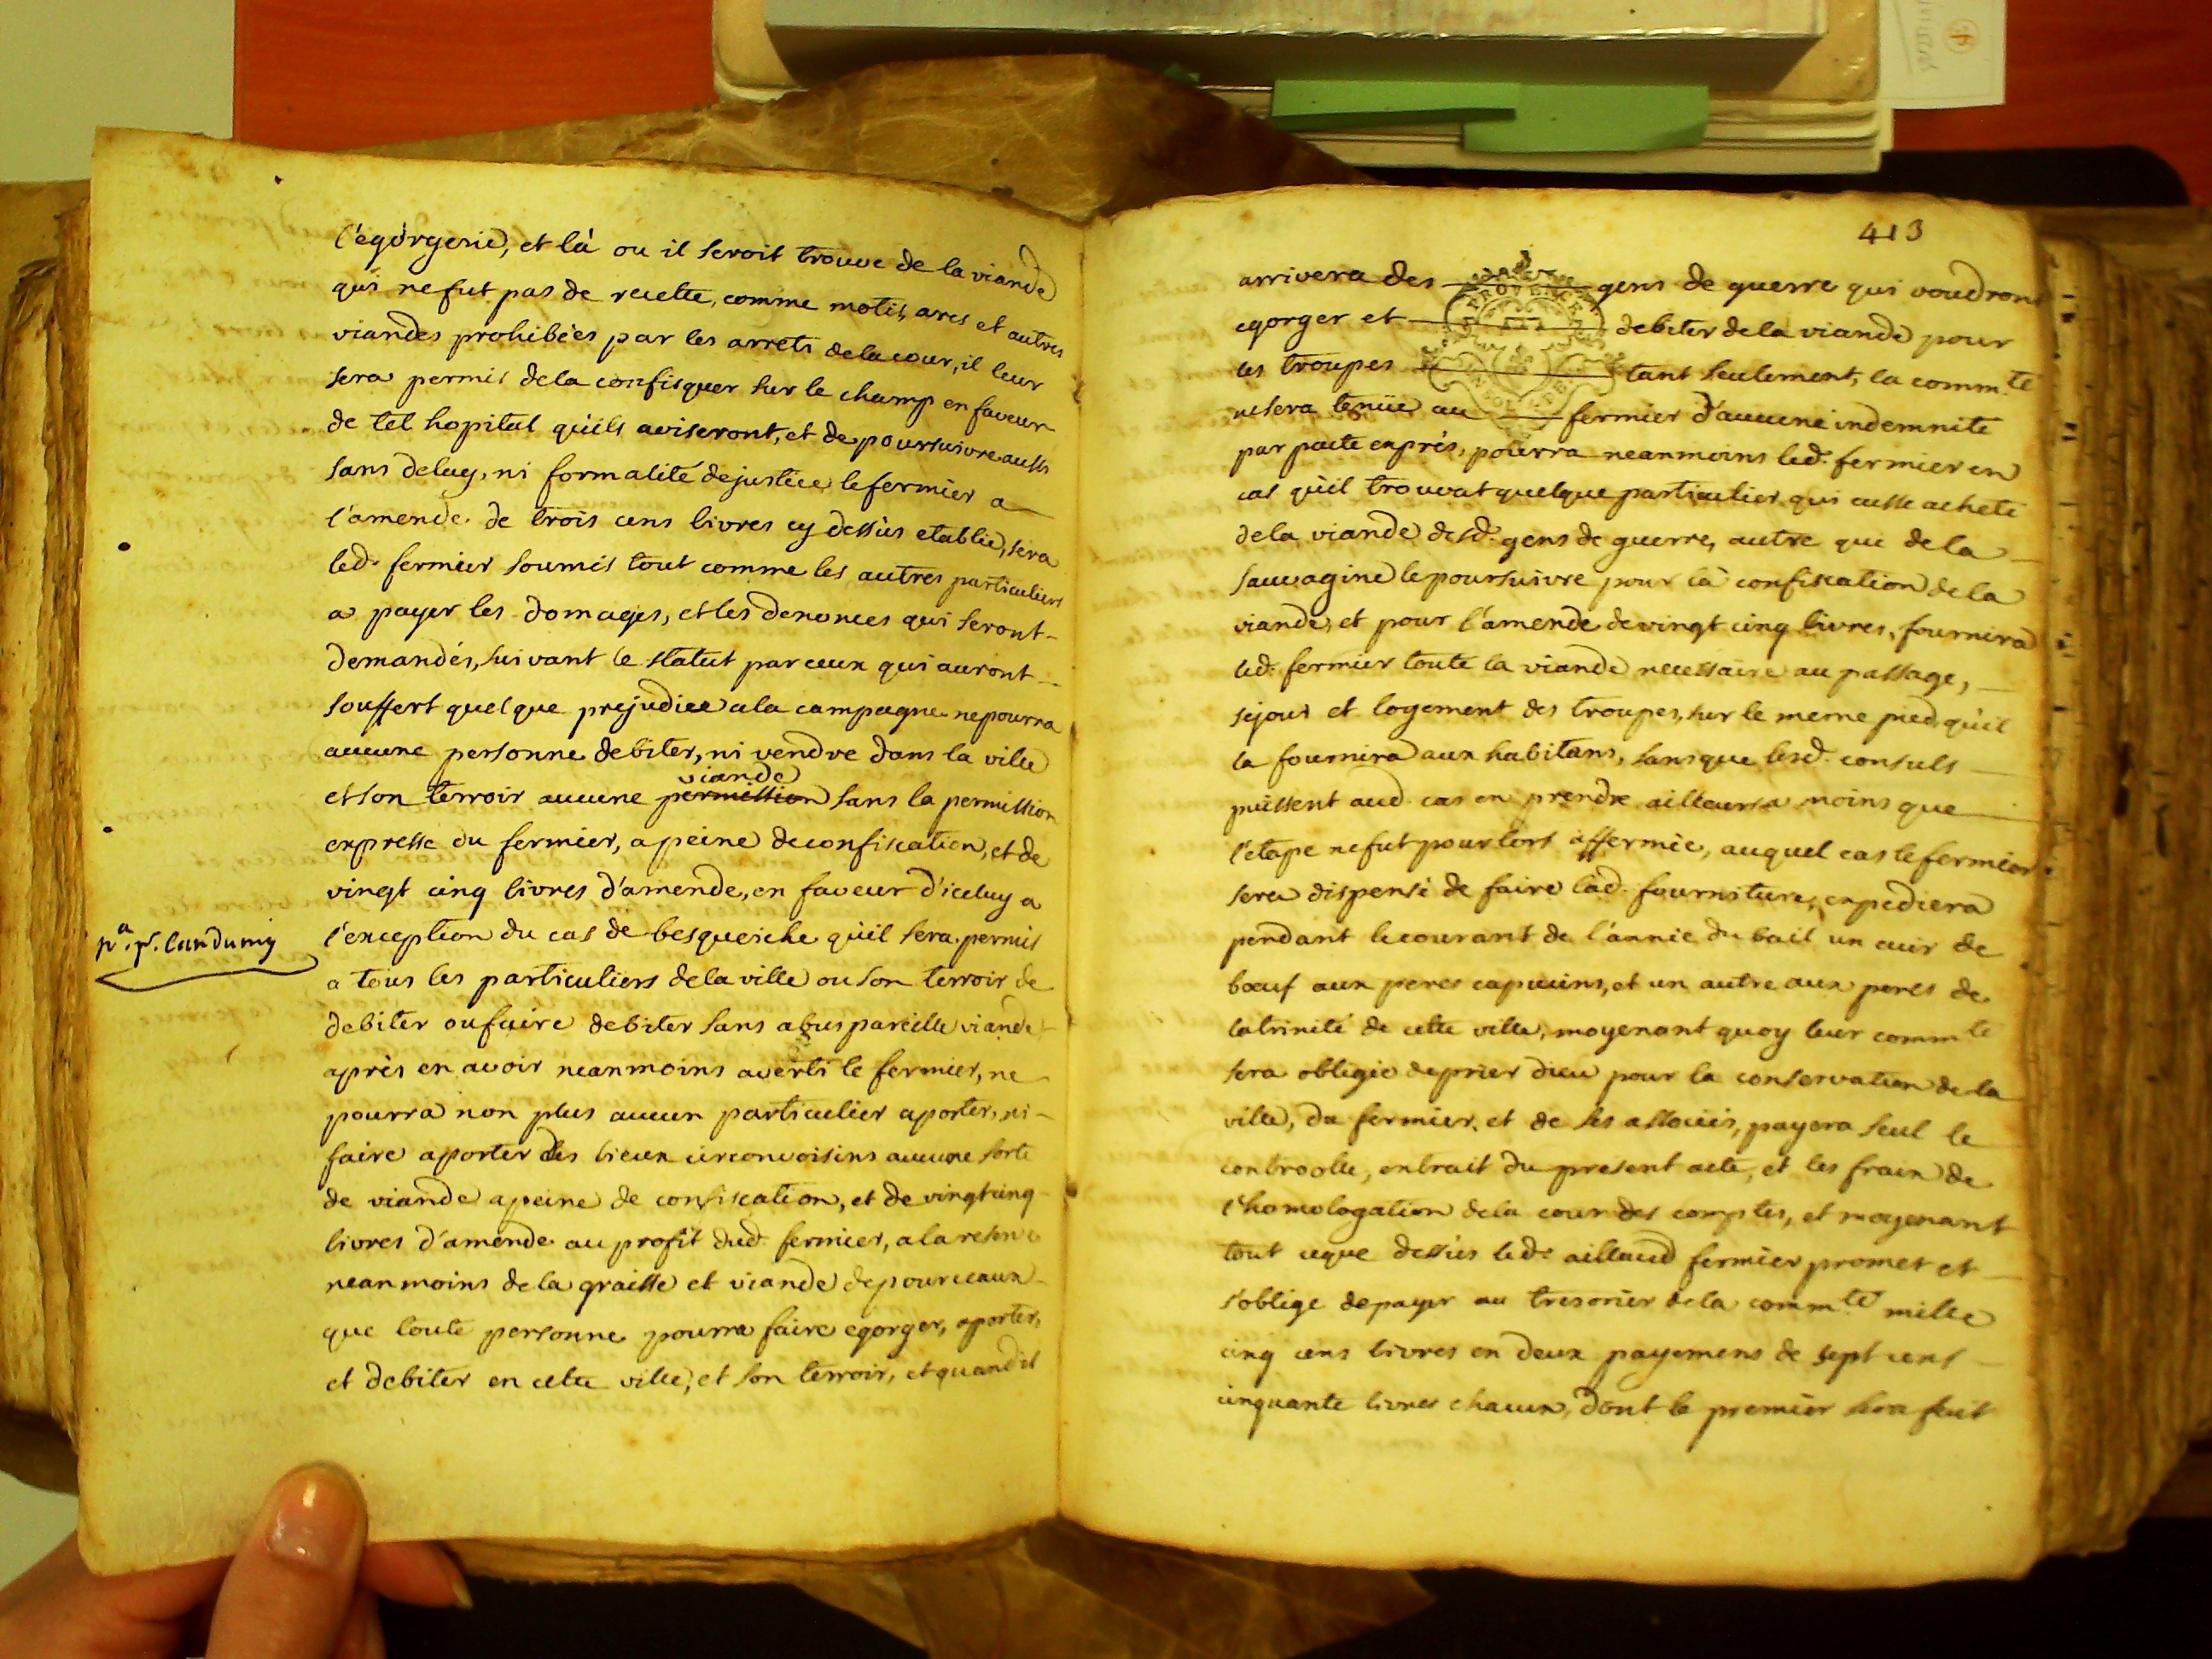 l'egorgerie, et là ou il seroit trouvé de la viande
qui ne fut pas de recette, comme motis, ares et autres
viandes prohibées par les arrets de la cour, il leur
sera permis de la confisquer sur le champ en faveur
de tel hopital qu'ils aviseront, et de poursuivre aussi
sans delay, ni formalité de justice, le fermier a
l'amende de trois cens livres cy dessus etablie, sera
led. fermier soumis tout comme les autres particuliers
a payer les domages, et les denonces qui seront
demandés, suivant le statut par ceux qui auront
souffert quelque prejudice a la campagne ne pourra
aucune personne debiter, ni vendre dans la ville
viande
et son terroir aucune permission sans la permission
expresse du fermier, a peine de confiscation, et de
vingt cinq livres d'amende, en faveur d'iceluy a
l'exception du cas de besqueiche qu'il sera permis
a tous les particuliers de la ville ou son terroir de
debiter ou faire debiter sans abus pareille viande
après en avoir neanmoins averti le fermier, ne
pourra non plus aucun particulier aporter, ni
faire aporter des lieux circonvoisins aucune sorte
de viande a peine de confiscation, et de vingt cinq
livres d'amende au profit dud. fermier, a la reserve
neanmoins de la graisse et viande de pourceaux
que toute personne pourra faire egorger, aporter,
et debiter en cette ville, et son terroir, et quand il
413
arrivera des gens de guerre qui voudront
egorger et debiter de la viande pour
les troupes tant seulement, la comm.té
ne sera tenüe au fermier d'aucune indemnité
par pacte exprés, pourra neanmoins led. fermier en
cas qu'il trouvat quelque particulier qui eusse acheté
de la viande desd. gens de guerre, autre que de la
sauvagine le poursuivre pour la confiscation de la
viande, et pour l'amende de vingt cinq livres, fournira
led. fermier toute la viande necessaire au passage,
sejour et logement des troupes, sur le meme pied qu'il
la fournira aux habitans, sans que lesd. consuls
puissent aud. cas en prendre ailleurs a moins que
l'etape ne fut pour lors affermée, auquel cas le fermier
sera dispensé de faire lad. fourniture, expediera
pendant le courant de l'année du bail un cuir de
bœuf aux peres capucins, et un autre aux peres de
la trinité de cette ville, moyenant quoy leur comm.té
sera obligée de prier dieu pour la conservation de la
ville, du fermier, et de ses associés, payera seul le
controolle, extrait du present acte, et les fraix de
l'homologation de la cour des comptes, et moyenant
tout ce que dessus led. aillaud fermier promet et
s'oblige de payer au tresorier de la comm.té mille
cinq cens livres en deux payemens de sept cens
cinquante livres chacun, dont le premier sera fait